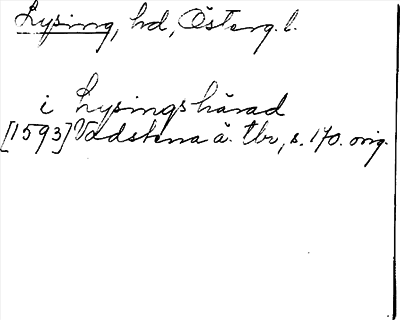 Lysing, hd, Österg. l.
i Lysingshärad
[1593] Vadstena ä. tbr, s. 170. orig.